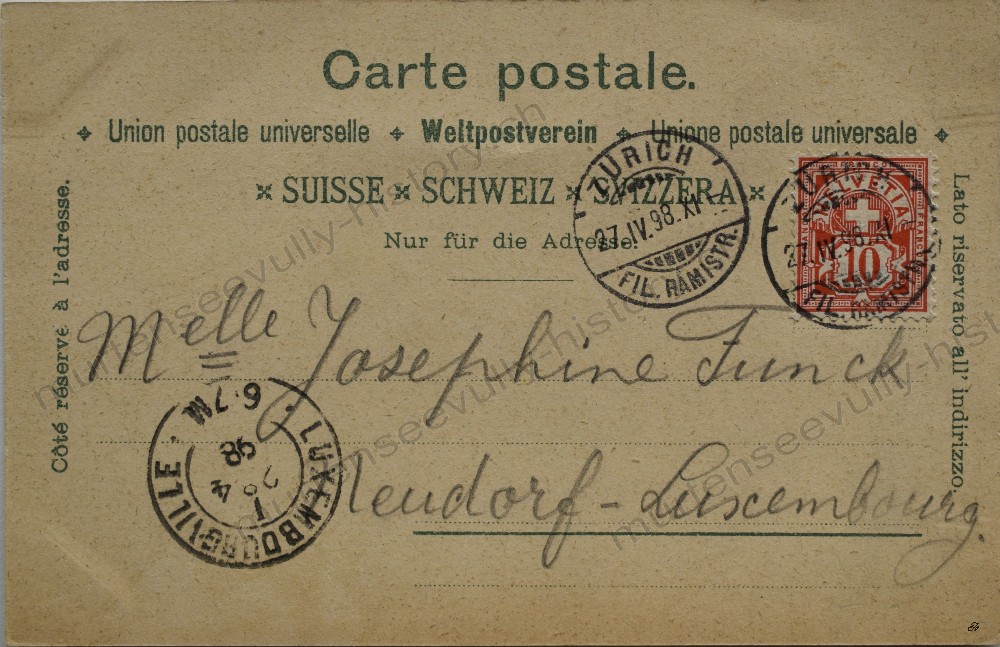 Carte postale.
Union postale universelle Weltpostverein Unione postale universale
SUISSE SCHWEIZ SVIZZERA
Nur für die Adresse.
Côté réservé à l'adresse.
Lato riservato all' indirizzo.
ZÜRICH
27.IV.98.XI
FIL. RÄMISTR.
ZÜRICH
27.IV.98.XI
FIL. RÄMISTR.
HELVETIA
10
Melle Josephine Funck
Neudorf-Luxembourg.
LUXEMBOURG-VILLE
6-7M
98
28 4
1
murtenseevully-history.ch